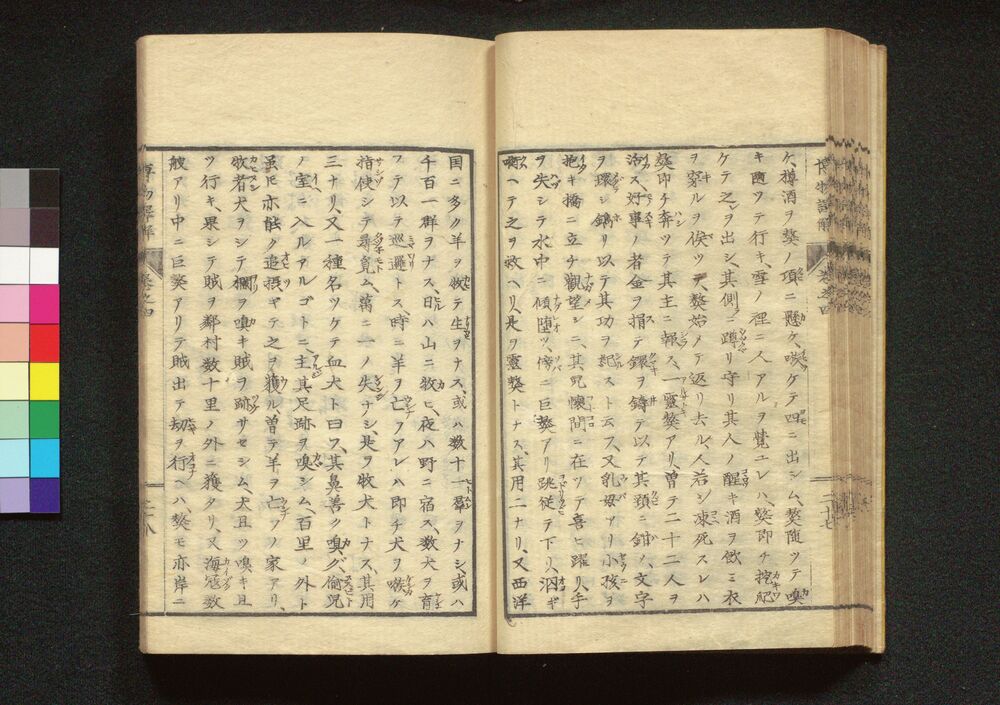 ケ、樽酒ヲ獒ノ項ニ懸ケ、嗾ケテ四ニ出シム、獒随ツテ嗅
キ齅ツテ行キ、雪ノ裡ニ人アルヲ覚ユレハ、獒即チ挖肥
ケテ之ヲ出シ、其側ニ蹲リ守リ其人ノ醒キ酒ヲ飲ミ衣
ヲ穿ルヲ俟ツテ、獒始メテ返リ去ル、人若シ凍死スレハ
獒即チ奔ツテ其主ニ報ス、一霊獒アリ、曽テ二十二人ヲ
活ス、好事ノ者金ヲ捐テ鐶ヲ鋳テ以テ其頚ニ鉗ノ、文字
ヲ環シ鐫リ以テ其功ヲ紀スト云フ、又乳母アリ小孩ヲ
抱キ橋ニ立チ観望シニ、其児懐間ニ在ツテ喜ヒ躍リ、手
ヲ失シテ水中ニ傾墮ツ、傍ニ巨獒アリ跳従テ下リ、泅ギ
啣ヘテ之ヲ救ヘリ、是ヲ霊獒トナス、其用二ナリ、又西洋
国ニ多ク羊ヲ牧テ生ヲナス、或ハ数十一羣ヲナシ、或ハ
千百一群ヲナス、日ハ山ニ牧ヒ、夜ハ野ニ宿ス、数犬ヲ育
フテ以テ巡邏トス、時ニ羊ヲ亡フアレハ即チ犬ヲ嗾ケ
指使シテ尋覓ム、萬ニ一ノ失ナシ、是ヲ牧犬トナス、其用
三ナリ、又一種名ツケテ血犬ト曰フ、其鼻善ク嗅グ、偸児
ノ室ニ入ルアルゴトニ、主其足跡ヲ嗅シム、百里ノ外ト
虽ヒ亦能ク追摂ギテ之ヲ獲ル、曽テ羊ヲ亡フノ家アリ、
牧者犬ヲシテ欄ヲ嗅キ賊ヲ跡サセシム犬且ツ嗅キ且
ツ行キ、果シテ賊ヲ鄰村数十里ノ外ニ獲タリ、又海寇数
艘アリ中ニ巨獒アリテ賊出テ劫ヲ行ヘハ獒モ亦岸ニ